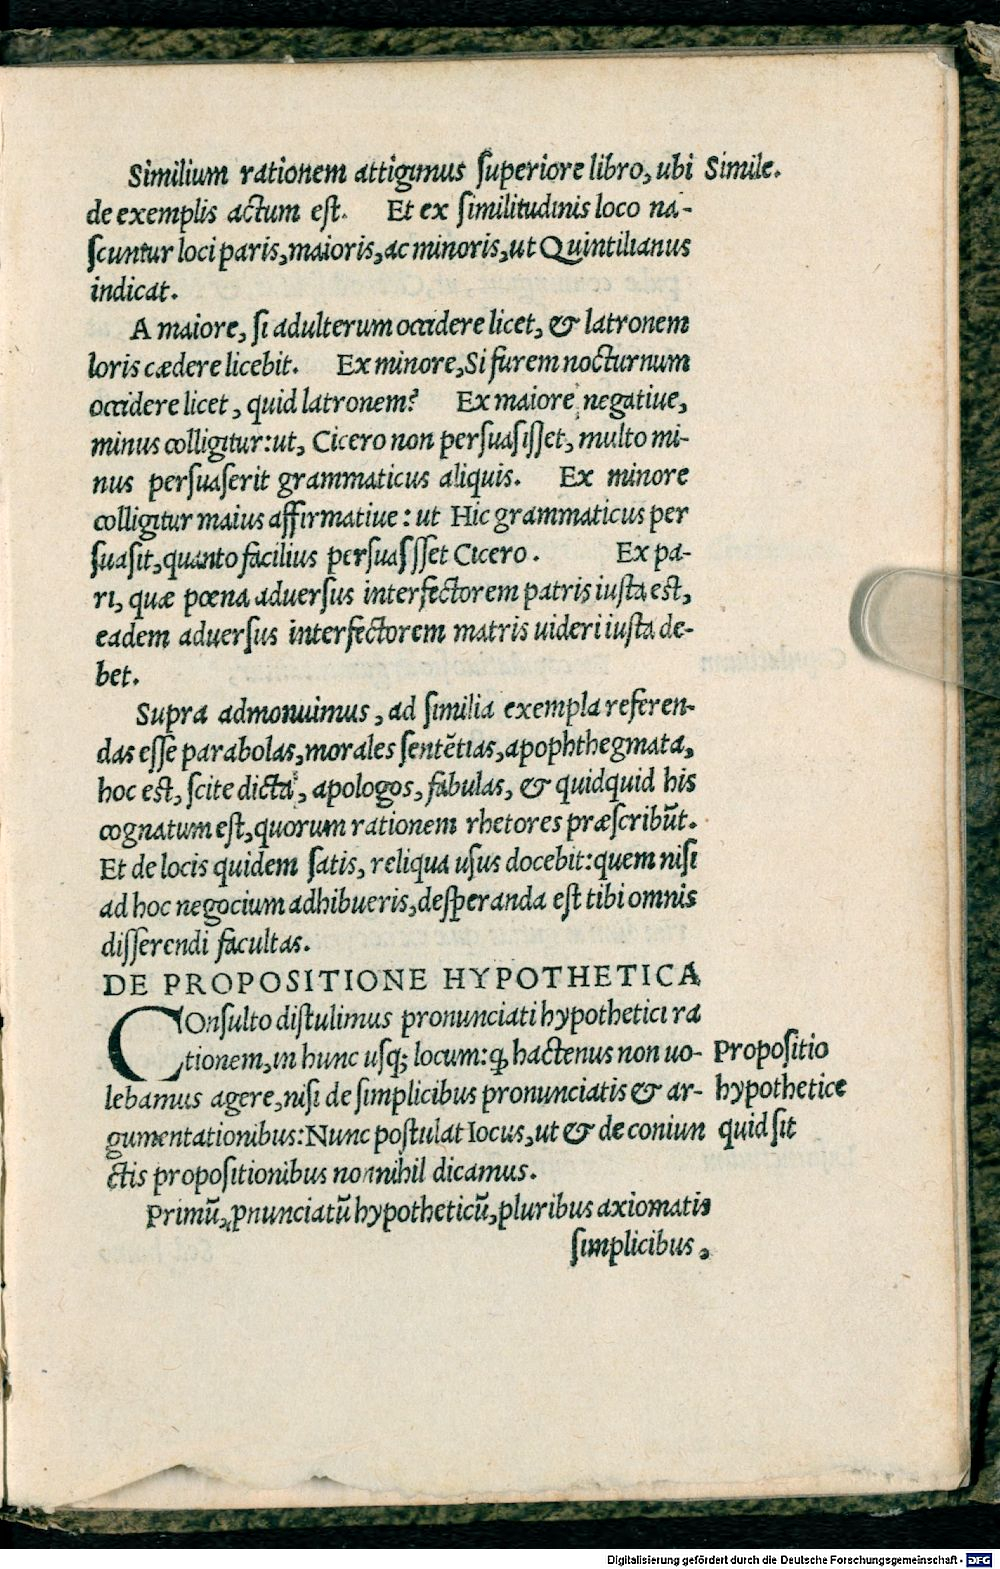 Similium rationem attigimus superiore libro, ubi Simile.
de exemplis actum est. Et ex similitudinis loco na-
scuntur loci paris, maioris, ac minoris, ut Quintilianus
indicat.
A maiore, si adulterum occidere licet, & latronem
loris cædere licebit. Ex minore, Si furem nocturnum
occidere licet, quid latronem? Ex maiore negatiue,
minus colligitur: ut, Cicero non persuasisset, multo mi-
nus persuaserit grammaticus aliquis. Ex minore
colligitur maius affirmatiue: ut Hic grammaticus per
suasit, quanto facilius persuasisset Cicero. Ex pa-
ri, quæ pœna aduersus interfectorem patris iusta est,
eadem aduersus interfectorem matris uideri iusta de-
bet.
Supra admonuimus, ad similia exempla referen-
das esse parabolas, morales sentētias, apophthegmata,
hoc est, scite dicta, apologos, fabulas, & quidquid his
cognatum est, quorum rationem rhetores præscribūt.
Et de locis quidem satis, reliqua usus docebit: quem nisi
ad hoc negocium adhibueris, desperanda est tibi omnis
disserendi facultas.
DE PROPOSITIONE HYPOTHETICA
COnsulto distulimus pronunciati hypothetici ra
tionem, in hunc usq; locum: ꝙ hactenus non uo- Propositio
lebamus agere, nisi de simplicibus pronunciatis & ar- hypothetice
gumentationibus: Nunc postulat locus, ut & de coniun quid sit
ctis propositionibus nonnihil dicamus.
Primū, ꝓnunciatū hypotheticū, pluribus axiomatis
simplicibus,
Digitalisierung gefördert durch die Deutsche Forschungsgemeinschaft - DFG